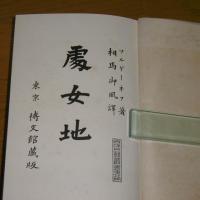 ツルゲーネフ著
相馬御風譯
處女地
東京 博文館藏版